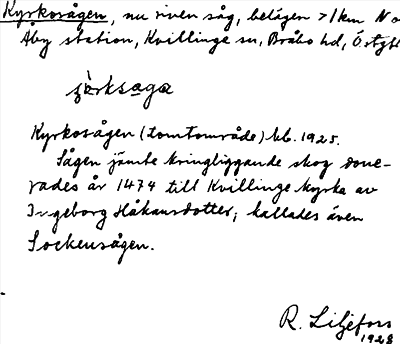 Kyrkosågen, nu riven såg, belägen >1 km N o
Åby station, Kvillinge sn, Bråbo hd, Östgötl
Kyrkosågen (tomtområde) kb. 1925.
Sågen jämte kringliggande skog done-
rades år 1474 till Kvillinge kyrka av
Ingeborg Håkansdotter; kallades även
Sockensågen.
R. Liljefors
1928